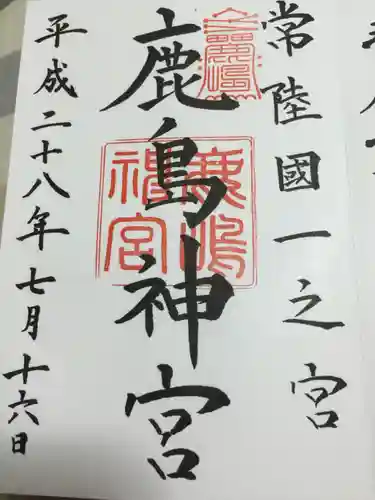 常陸國一之宮
鹿島神宮
平成二十八年七月十六日
鹿嶋
神宮